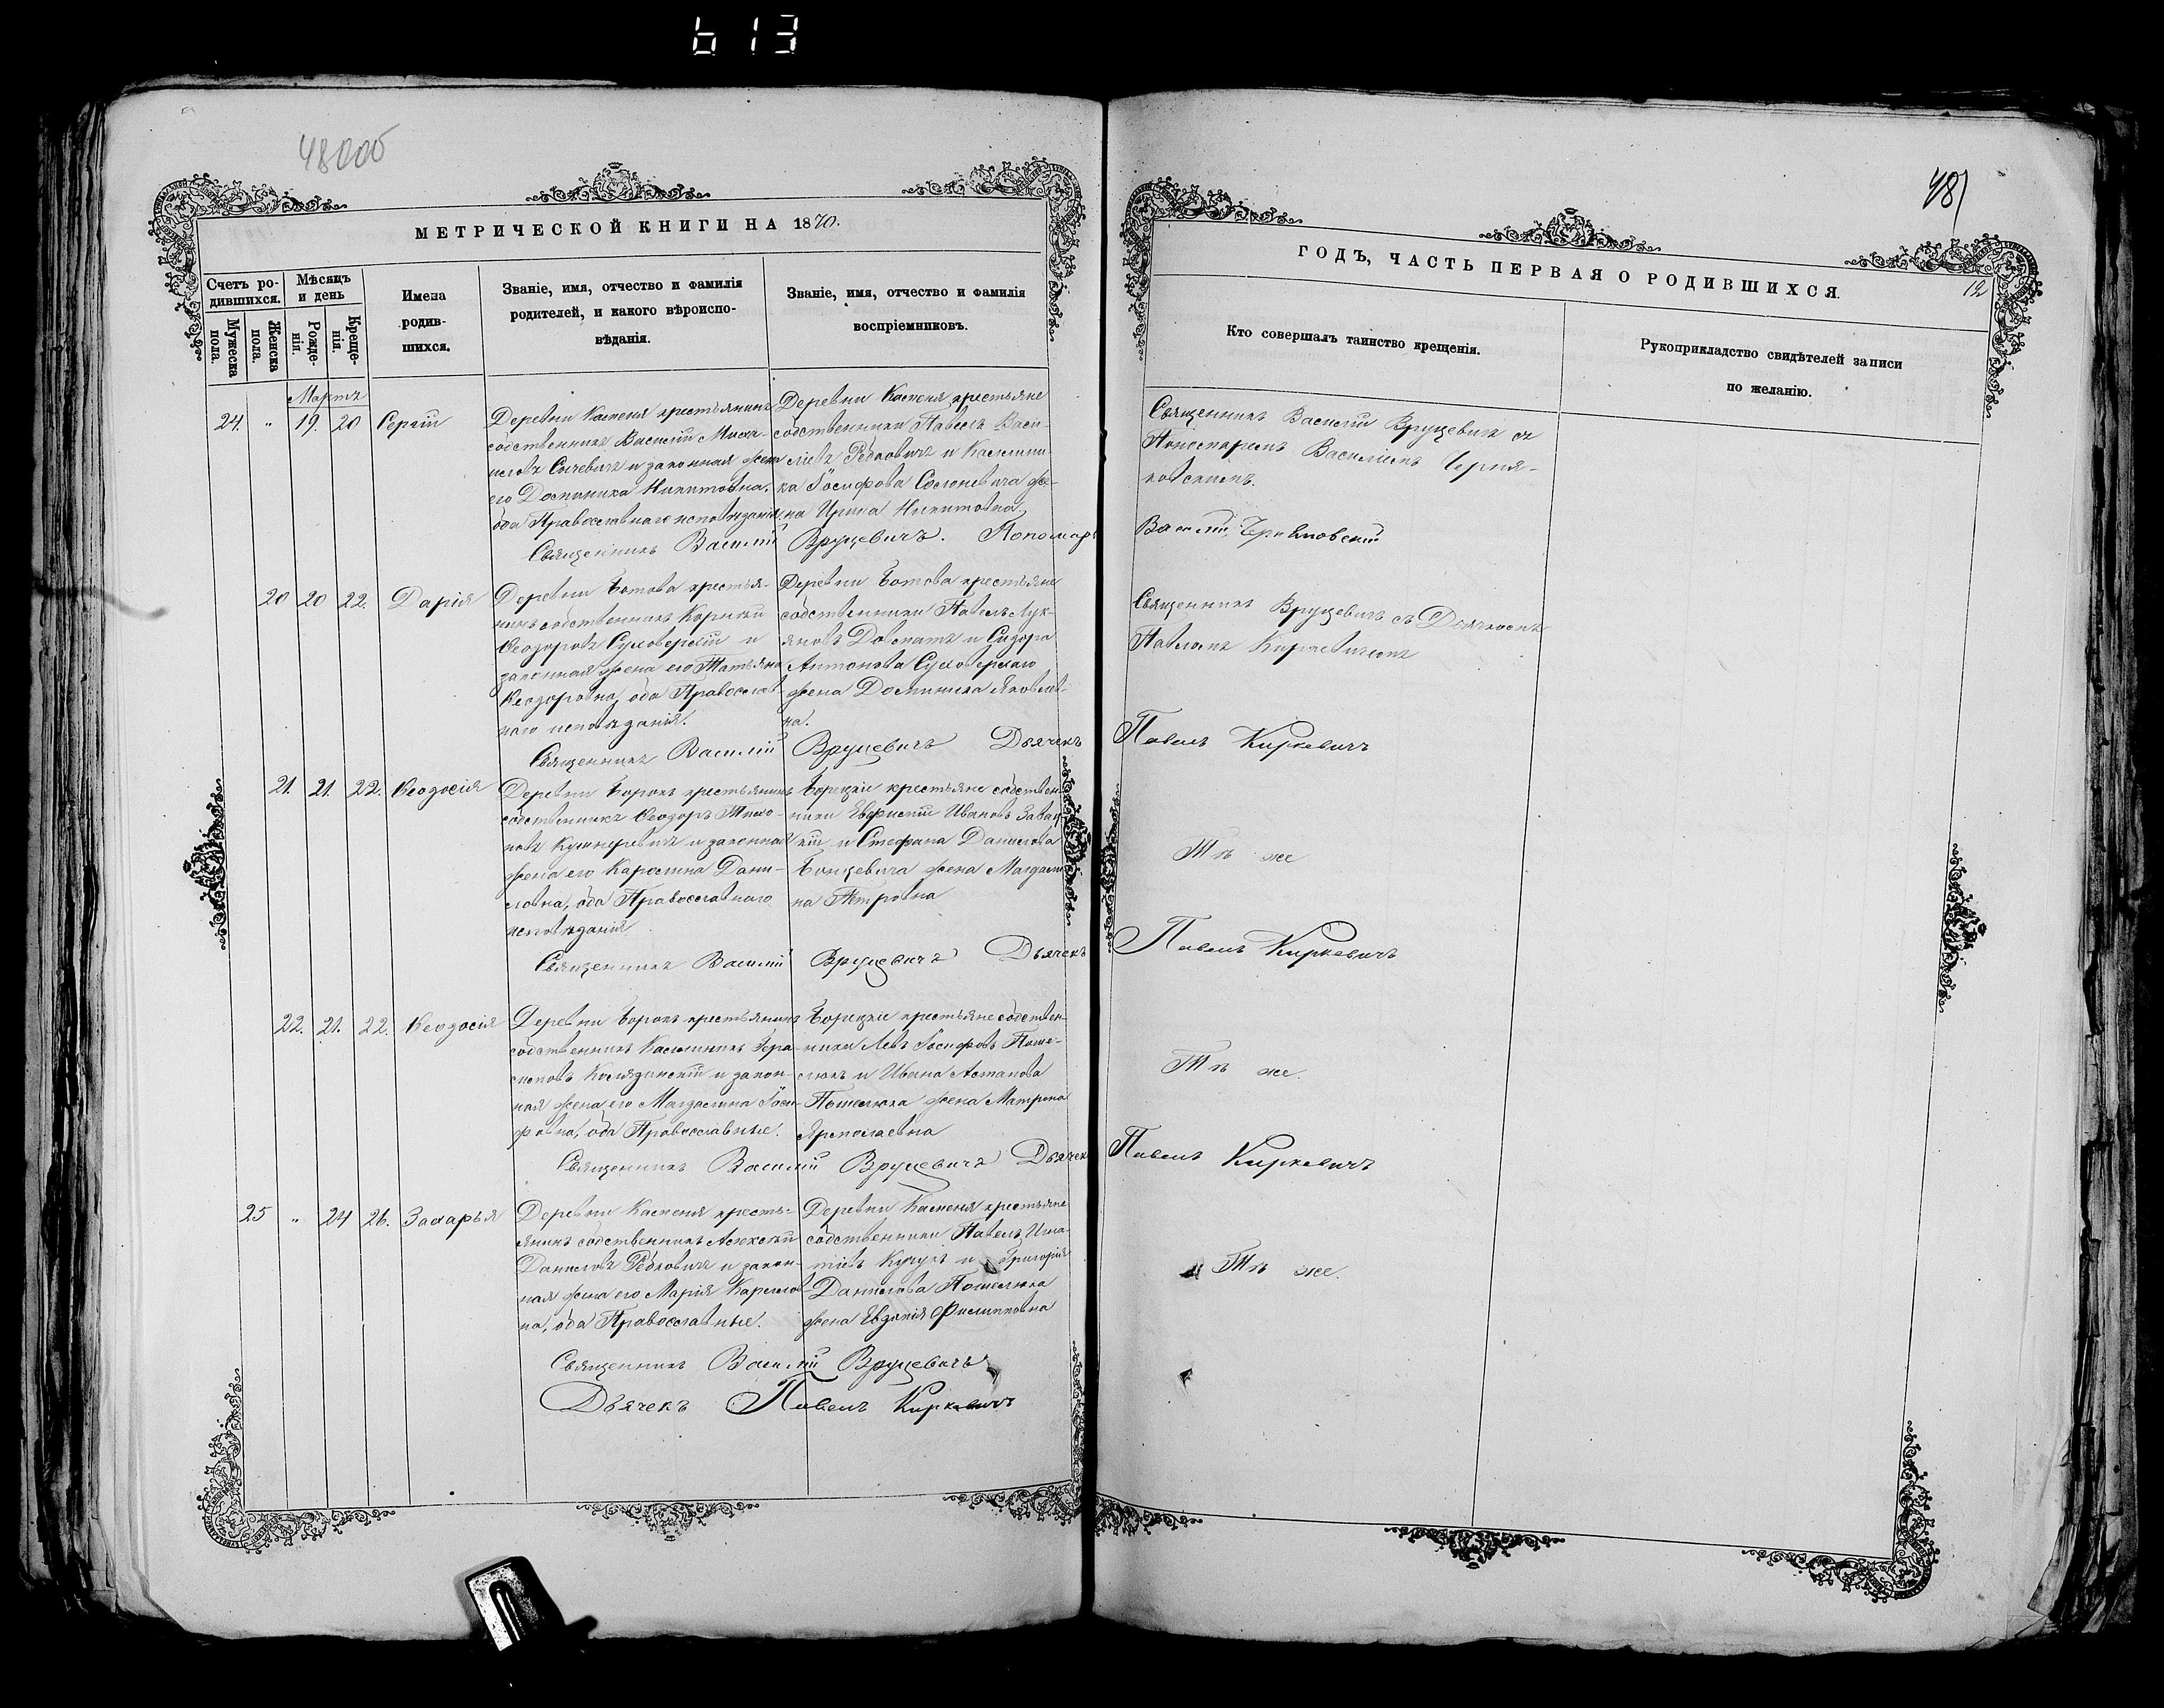 613
48 об
481
МЕТРИЧЕСКОЙ КНИГИ НА 1870.
ГОДЪ, ЧАСТЬ ПЕРВАЯ О РОДИВШИХСЯ.
12
Счетъ родившихся.
Мужеска пола.
Женска пола.
Мѣсяцъ и день
Рожденія.
Крещенія.
Имена родившихся.
Званіе, имя, отчество и фамилія
родителей, и какого вѣроиспо-
вѣданія.
Званіе, имя, отчество и фамилія
воспріемниковъ.
Кто совершалъ таинство крещенія.
Рукоприкладство свидѣтелей записи
по желанію.
Мартъ
24. " 19. 20 Сергій
Деревни Каменя крестьянинъ
собственникъ Василій Миха-
иловъ Сычевичъ и законная жена
его Доминика Никитовна,
оба Православнаго исповѣданія.
Деревни Каменя крестьяне
собственники Павелъ Васи-
ліевъ Рѣдковичъ и Калини-
ка Іосифова жe-
на Ирина Никитовна
Священникъ Василій Вруцевичъ съ
Пономаремъ Василіемъ Черня-
ковскимъ.
Священникъ Василій Вруцевичъ. Пономарь Василій Черняковскій
20 20 22. Дарія
Деревни Ботова крестья-
нинъ собственникъ Корнилій
Ѳеодоровъ Суховерскій и
законная жена его Татьяна
Ѳеодоровна, оба Православ-
наго исповѣданія.
Деревни Ботова крестьяне
собственники Павелъ Лук-
яновъ Довнатъ и Сидора
Антонова Суховерскаго
жена Доминика Яковлев-
на.
Священникъ Вруцевичъ съ Дьячкомъ
Павломъ Киркевичемъ
Священникъ Василій Вруцевичъ Дьячекъ Павелъ Киркевичъ
21. 21. 22. Ѳеодосія
Деревни Борокъ крестьянинъ
собственникъ Ѳеодоръ Тимо-
новъ Кушнеревичъ и законная
жена его Каролина Дани-
ловна, оба Православнаго
исповѣданія
Борецкіе крестьяне собствен-
ники Ивановъ Завац-
кій и Стефана Данилова
Бонцевича жена Магдали-
на Петровна
Тѣ же
Священникъ Василій Вруцевичъ Дьячекъ Павелъ Киркевичъ
22. 21. 22. Ѳеодосія
Деревни Борокъ крестьянинъ
собственникъ Калинникъ Гера-
симовъ Колядинскій и закон-
ная жена его Магдалина Іоси-
фовна, оба Православные.
Борецкіе крестьяне собствен-
ники Левъ Іосифовъ Поше-
люкъ и Ивана Астапова
Пошелюка жена Матрона
Ермолаевна
Тѣ же.
Священникъ Василій Вруцевичъ Дьячекъ Павелъ Киркевичъ
25 " 24 26. Захарья
Деревни Каменя кресть-
янинъ собственникъ Алексѣй
Даниловъ Рѣдковичъ и закон-
ная жена его Марія Карлов-
на, оба Православные.
Деревни Каменя крестьяне
собственники Павелъ Игна-
тіевъ Кучукъ и Григорія
Данилова Пошелюка
жена Евдокія Филипповна
Тѣ же.
Священникъ Василій Вруцевичъ
Дьячекъ Павелъ Киркевичъ